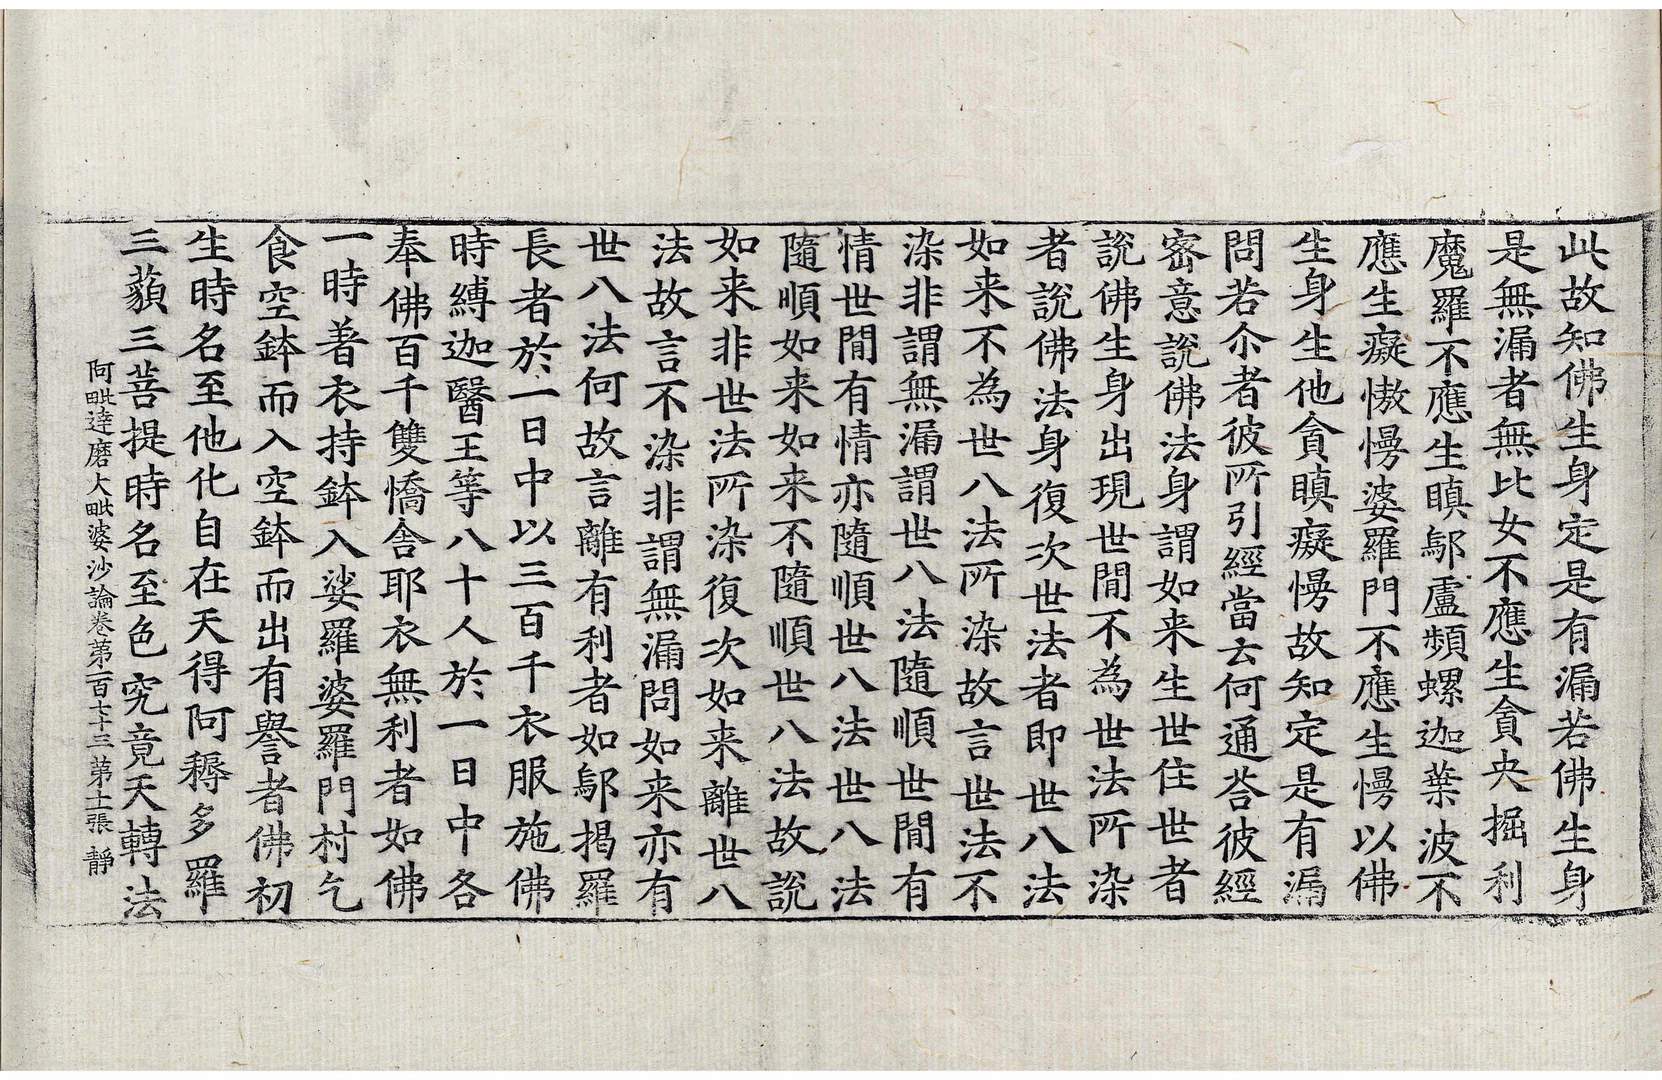 此故知佛生身定是有漏若佛生身
是無漏者無比女不應生貪央掘利
魔羅不應生瞋鄔盧頻螺迦葉波不
應生癡憿慢婆羅門不應生慢以佛
生身生他貪瞋癡慢故知定是有漏
問若尒者彼所引經當云何通荅彼經
密意說佛法身謂如来生世住世者
說佛生身出現世間不為世法所染
者說佛法身復次世法者即世八法
如来不為世八法所染故言世法不
染非謂無漏謂世八法隨順世間有
情世間有情亦隨順世八法世八法
隨順如来如来不隨順世八法故說
如来非世法所染復次如来離世八
法故言不染非謂無漏問如来亦有
世八法何故言離有利者如鄔揭羅
長者於一日中以三百千衣服施佛
時縛迦醫王等八十人於一日中各
奉佛百千雙憍舍耶衣無利者如佛
一時著衣持鉢入娑羅婆羅門村乞
食空鉢而入空鉢而出有譽者佛初
生時名至他化自在天得阿耨多羅
三藐三菩提時名至色究竟天轉法
阿毗達磨大毗婆沙論卷第一百七十三 第十二張 靜